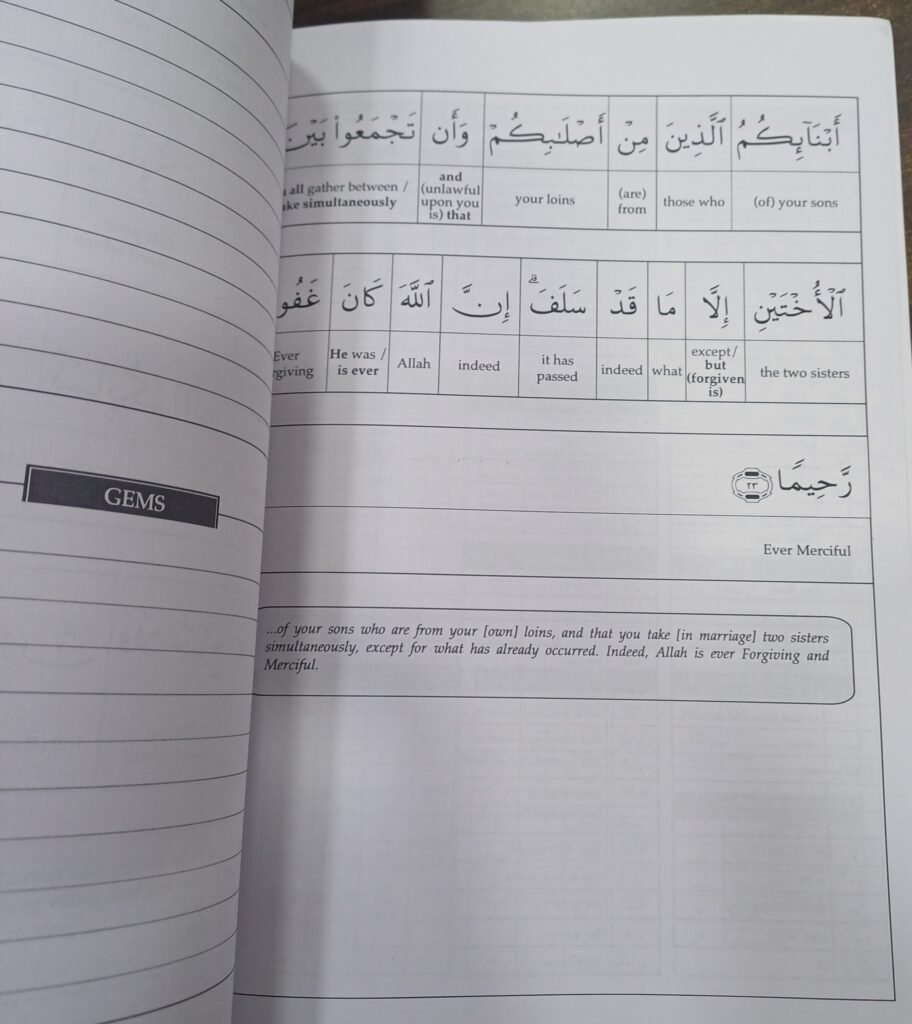 GEMS
أَبْنَآئِكُمُ ٱلَّذِينَ مِنْ أَصْلَـٰبِكُمْ وَأَن تَجْمَعُوا۟ بَيْنَ
(of) your sons those who (are) from your loins and (unlawful upon you is) that all gather between / simultaneously
ٱلْأُخْتَيْنِ إِلَّا مَا قَدْ سَلَفَ ۗ إِنَّ ٱللَّهَ كَانَ
the two sisters except/ but (forgiven is) what indeed it has passed indeed Allah He was / is ever Ever
رَّحِيمًا ٢٣
Ever Merciful
...of your sons who are from your [own] loins, and that you take [in marriage] two sisters
simultaneously, except for what has already occurred. Indeed, Allah is ever Forgiving and
Merciful.